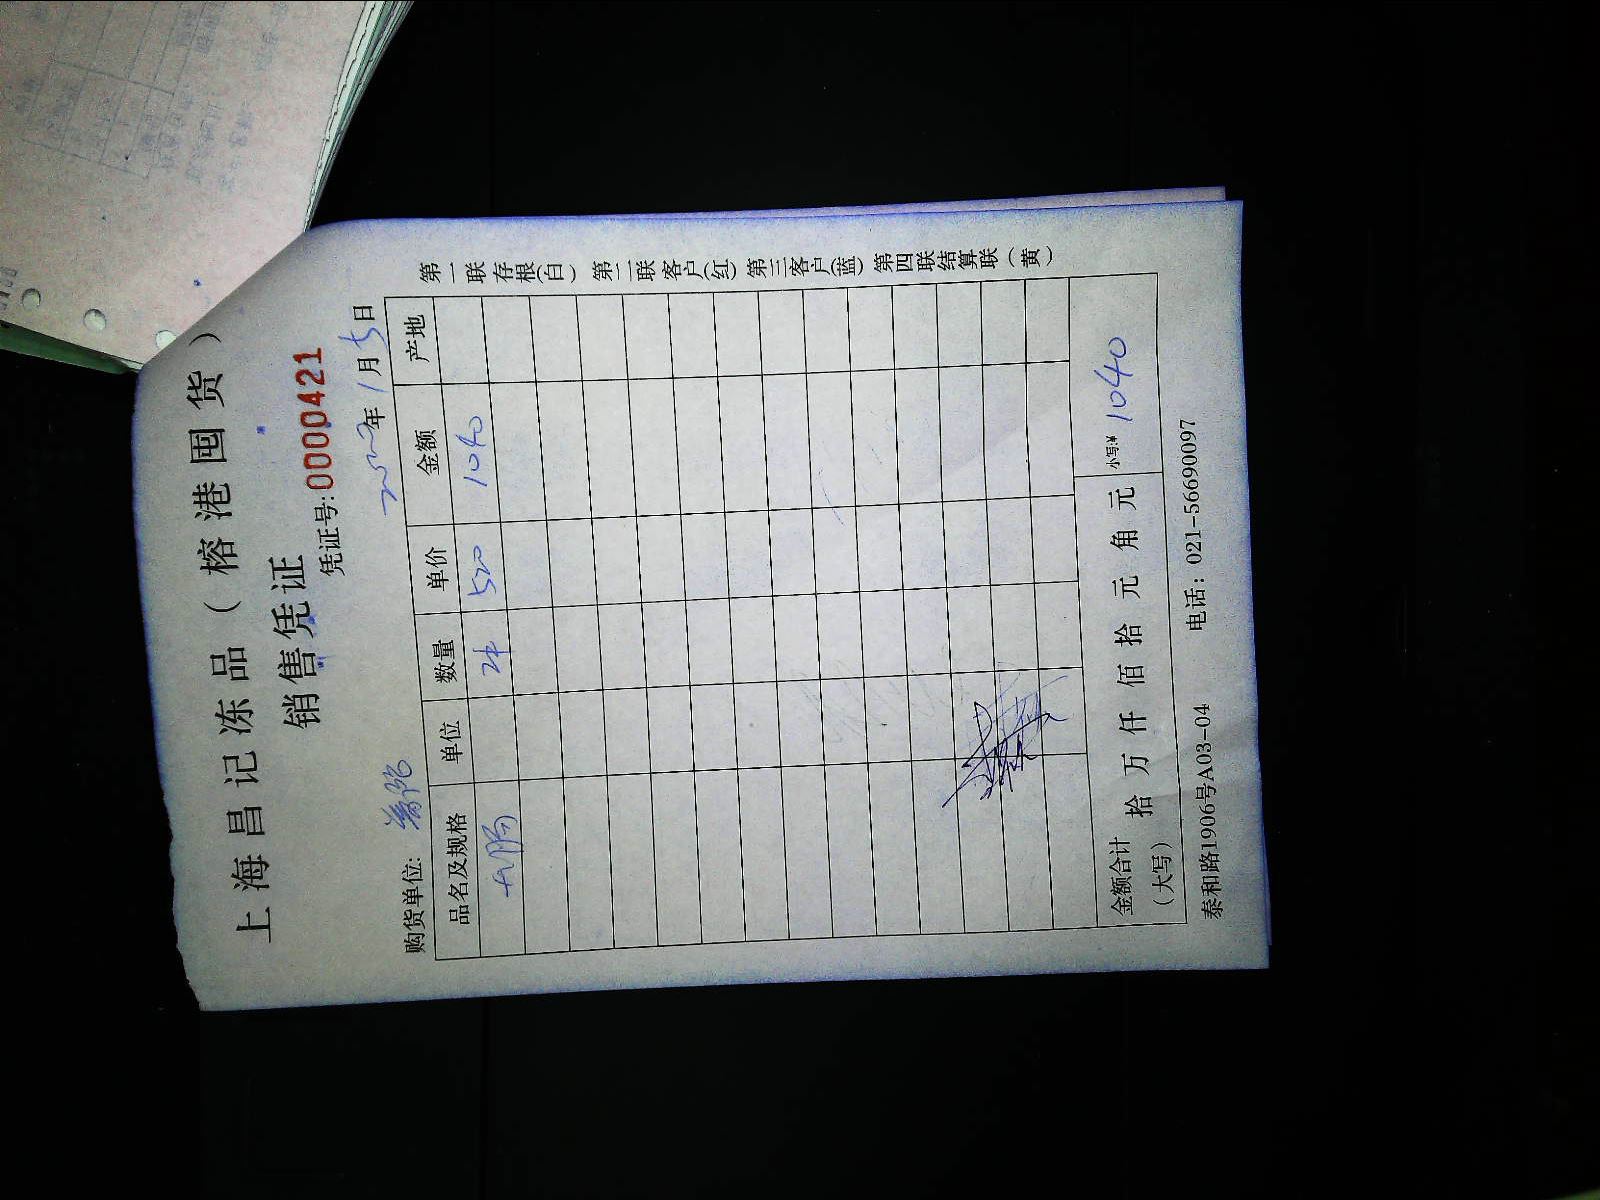 上海昌记冻品（榕港囤货）
销售凭证
凭证号:0000421
2022年1月5日
购货单位:
品名及规格 单位 数量 单价 金额 产地
大肠 2件 520 1040
金额合计（大写） 拾 万 仟 佰 拾 元 角 元 小写:¥ 1040
泰和路1906号A03-04 电话：021-56690097
第一联存根(白) 第二联客户(红) 第三客户(蓝) 第四联结算联(黄)